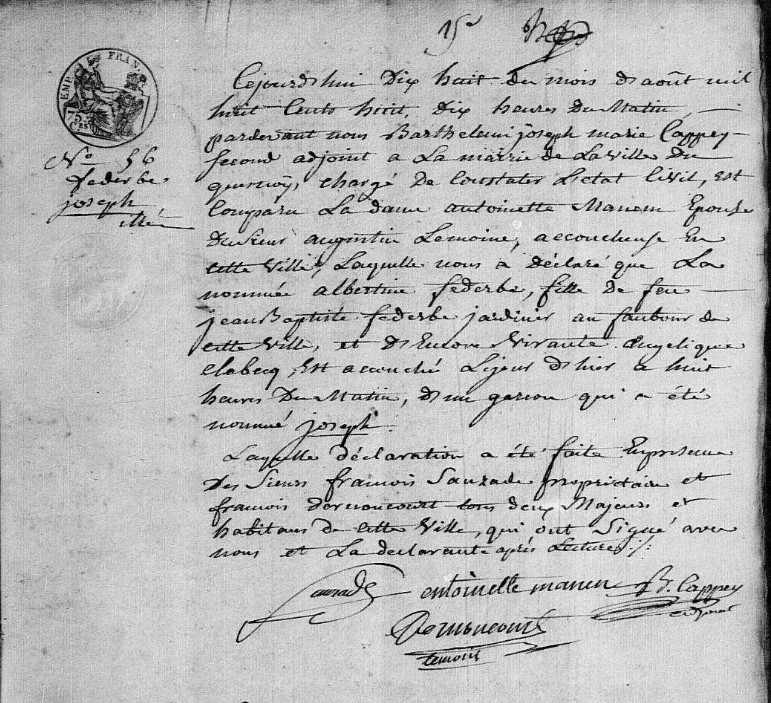 15e
EMP. FRAN.
75
Cejourdhui dix huit du mois daoût mil
huit Cents huit dix heures du Matin
pardevant nous Barthelemi joseph marie Cappey
second adjoint a La mairie de La ville du
quesnoÿ, chargé De Constater Letat Civil, est
Comparu La dame antoinette Manem Epouse
Du sieur augustin Lemoine, accoucheuse En
cette ville, Laquelle nous a déclaré que La
nommée albertine federbe, fille De feu
jean Baptiste federbe jardinier au faubour de
cette ville, et dEncore vivante angelique
Clabecq, est accouché Lejour dhier a huit
heures Du Matin, dun garcon qui a été
nommé joseph.
Laquelle déclaration a été faite Enpresence
Des sieurs francois Sauzade propriétaire et
francois dormoncourt tous deux Majeurs et
habitans de cette ville, qui ont Signé avec
nous et La declarante après Lecture ./.
No 56
federbe
joseph
illé
Sauzade entoinette manem B. Cappey
adjoint
Dormoncourt
temoin